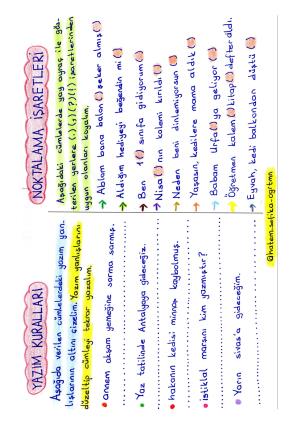 YAZIM KURALLARI
Aşağıda verilen cümlelerdeki yazım yan-
lışlarının altını çizelim. Yazım yanlışlarını
düzeltip cümleyi tekrar yazalım.
annem akşam yemeğine sarma sarmış.
Yaz tatilinde Antalyaya gideceğiz.
hakanın kedisi minnoş kaybolmuş.
istiklal marşını kim yazmıştır?
Yarın sivas'a gideceğim.
NOKTALAMA İŞARETLERİ
Aşağıdaki cümlelerde yay ayraç ile gös-
terilen yerlere (.) (,) (?) (!) işaretlerinden
uygun olanları koyalım.
Ablam bana balon ( ) şeker almış ( )
Aldığım hediyeyi beğendin mi ( )
Ben 1( ) sınıfa gidiyorum ( )
Nisa ( ) nın kalemi kırıldı ( )
Neden beni dinlemiyorsun ( )
Yaşasın, kedilere mama aldık ( )
Babam Urfa( )ya geliyor ( )
Öğretmen kalem ( ) kitap ( ) defter aldı.
Eyvah, kedi balkondan düştü ( )
@hatem.sefika-ogrtmn